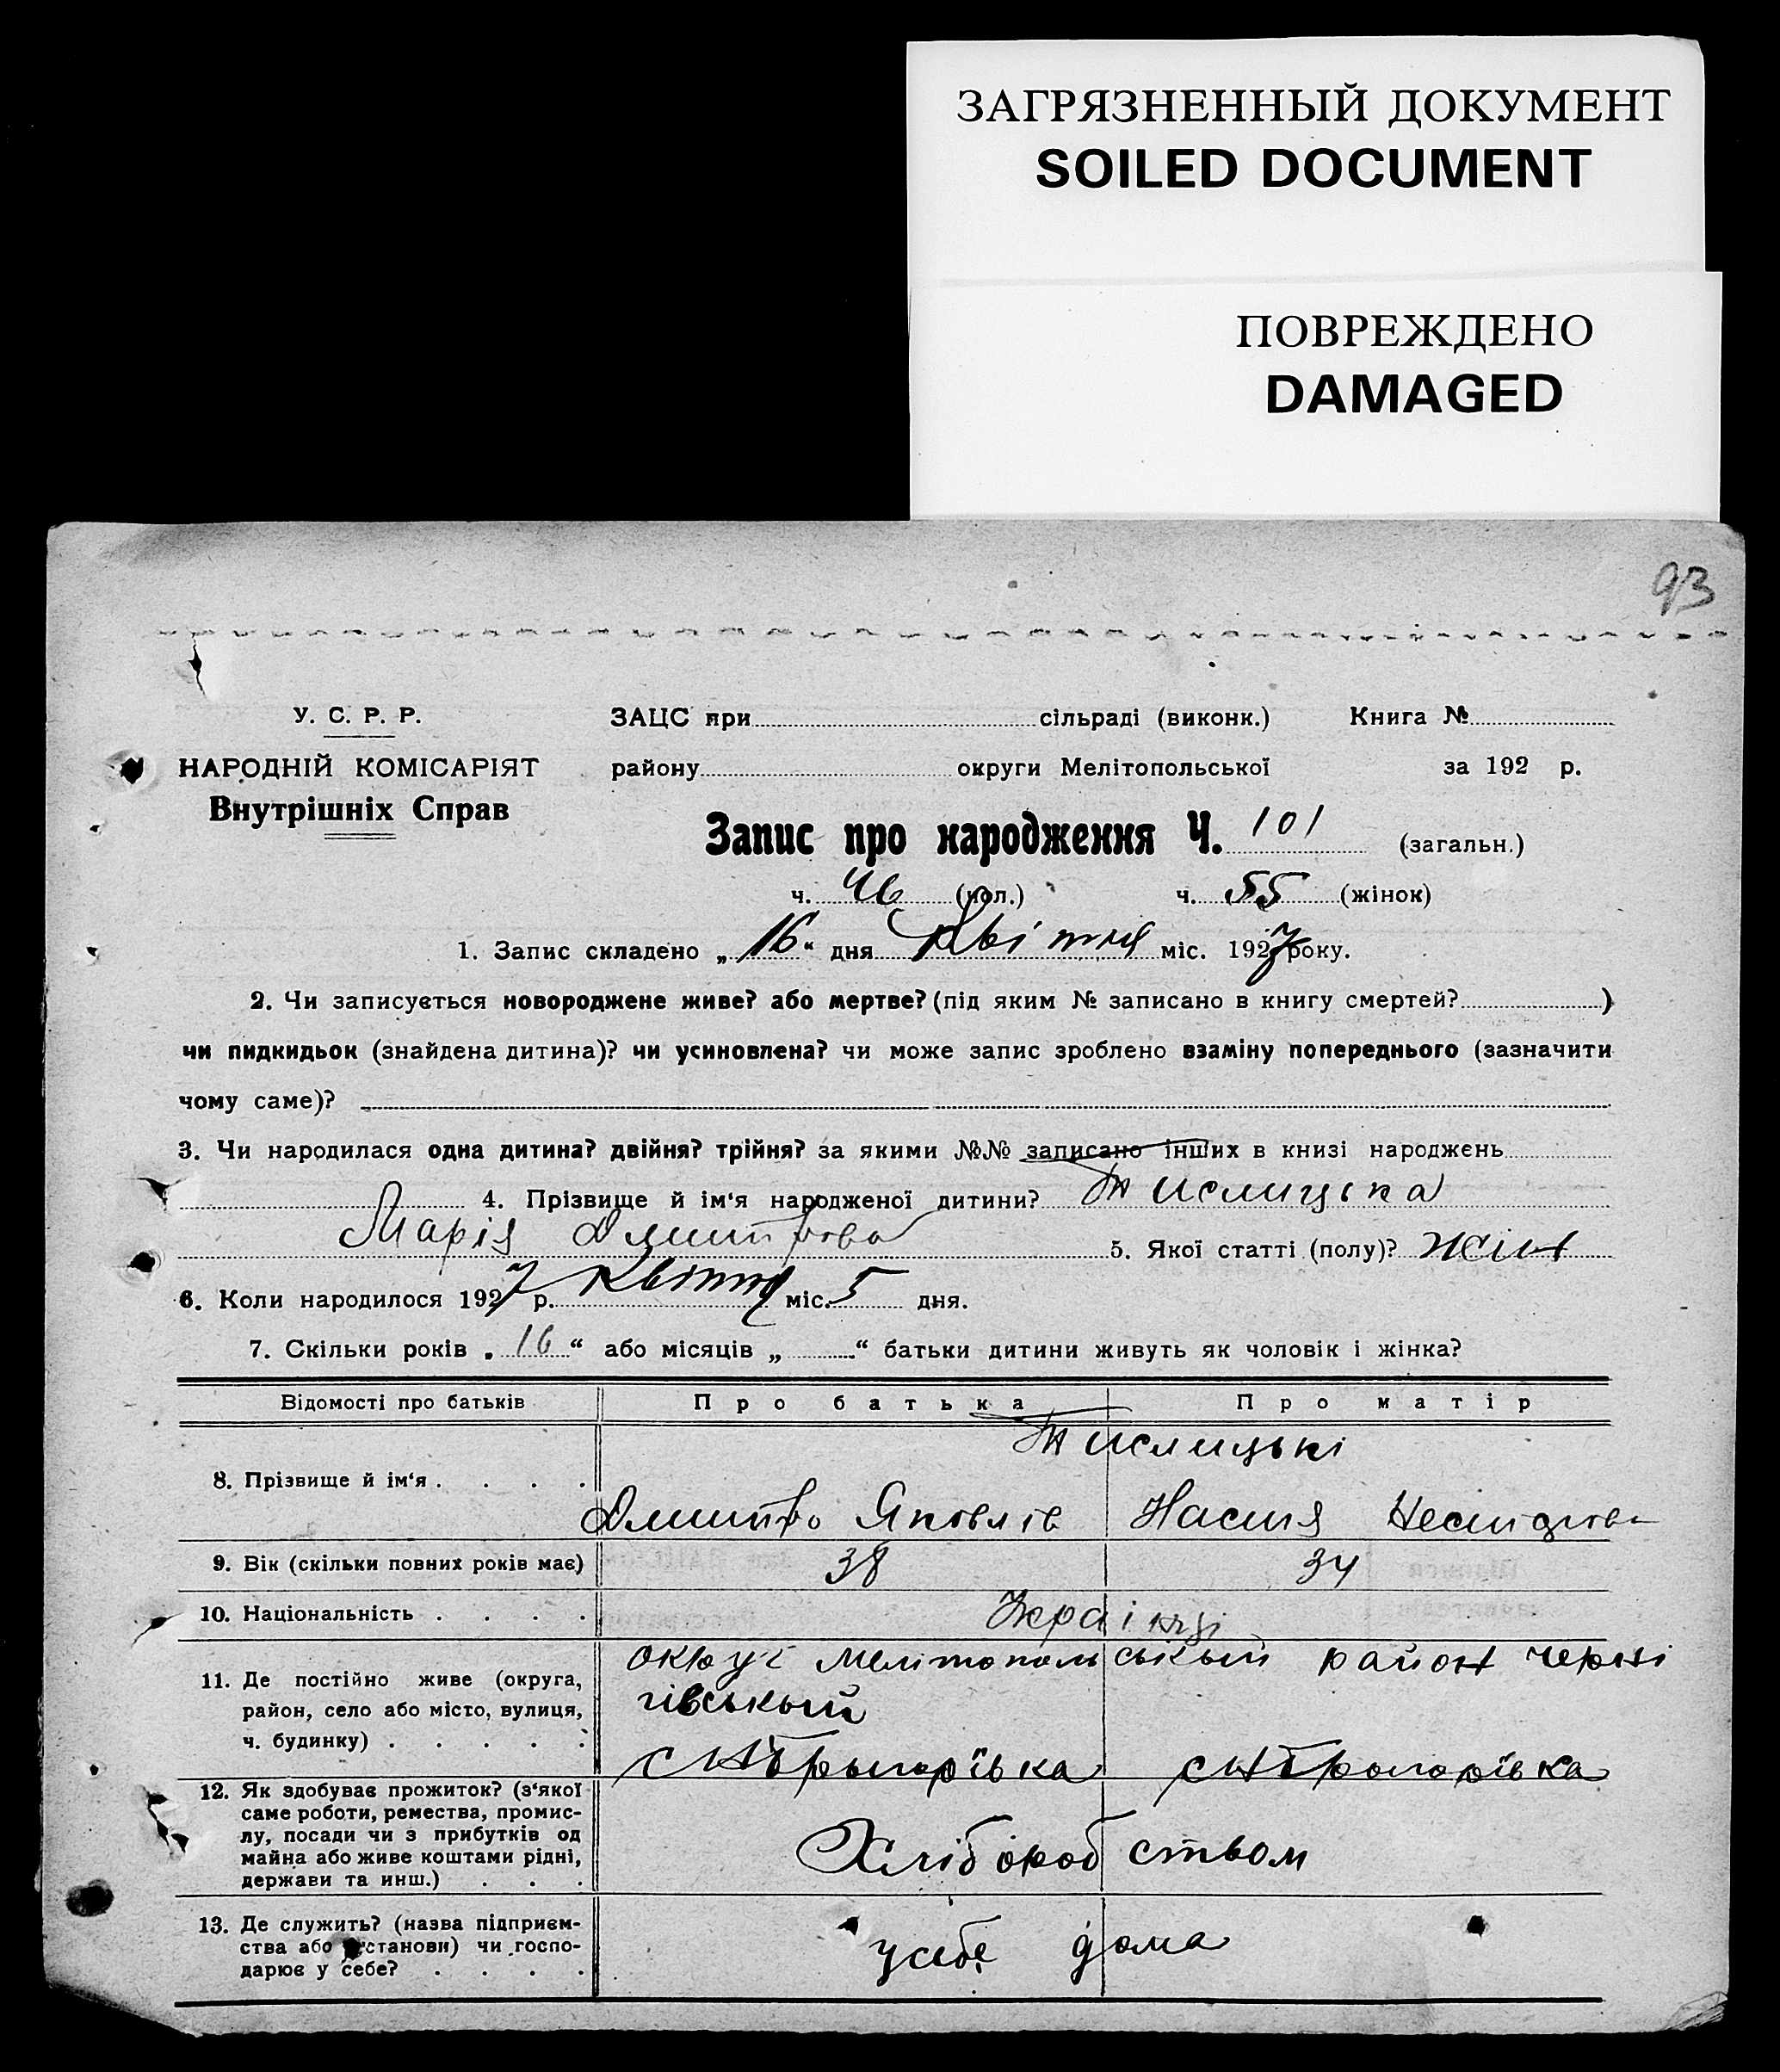 ЗАГРЯЗНЕННЫЙ ДОКУМЕНТ
SOILED DOCUMENT
ПОВРЕЖДЕНО
DAMAGED
93
У. С. Р. Р.
НАРОДНІЙ КОМІСАРІЯТ
Внутрішніх Справ
ЗАЦС при сільраді (виконк.) Книга №
району округи Мелітопольської за 192 р.
Запис про народження Ч. 101 (загальн.)
ч. 46 (чол.) ч. 55 (жінок)
1. Запис складено „ 16 “ дня Квітня міс. 1927 року.
2. Чи записується новороджене живе? або мертве? (під яким № записано в книгу смертей? )
чи пидкидьок (знайдена дитина)? чи усиновлена? чи може запис зроблено взаміну попереднього (зазначити
чому саме)?
3. Чи народилася одна дитина? двійня? трійня? за якими №№ записано інших в книзі народжень
4. Прізвище й ім'я народженої дитини? Тислицька
Марія Дмитрова 5. Якої статті (полу)? жін
6. Коли народилося 1927 р. Квітня міс. 5 дня.
7. Скільки років „ 16 “ або місяців „ “ батьки дитини живуть як чоловік і жінка?
Відомості про батьків Про батька Про матір
Тислицькі
8. Прізвище й ім'я . . . .
Дмитро Яковлів Насця
9. Вік (скільки повних років має) 38 34
10. Національність . . . . Украінці
11. Де постійно живе (округа, район, село або місто, вулиця, ч. будинку) . . . . .
округ Мелітопольський район Черні
гівський
12. Як здобуває прожиток? (з'якої саме роботи, ремества, промислу, посади чи з прибутків од майна або живе коштами рідні, держави та инш.) . . .
Хліборобством
13. Де служить? (назва підприємства або установи) чи господарює у себе? . . . .
у себе дома